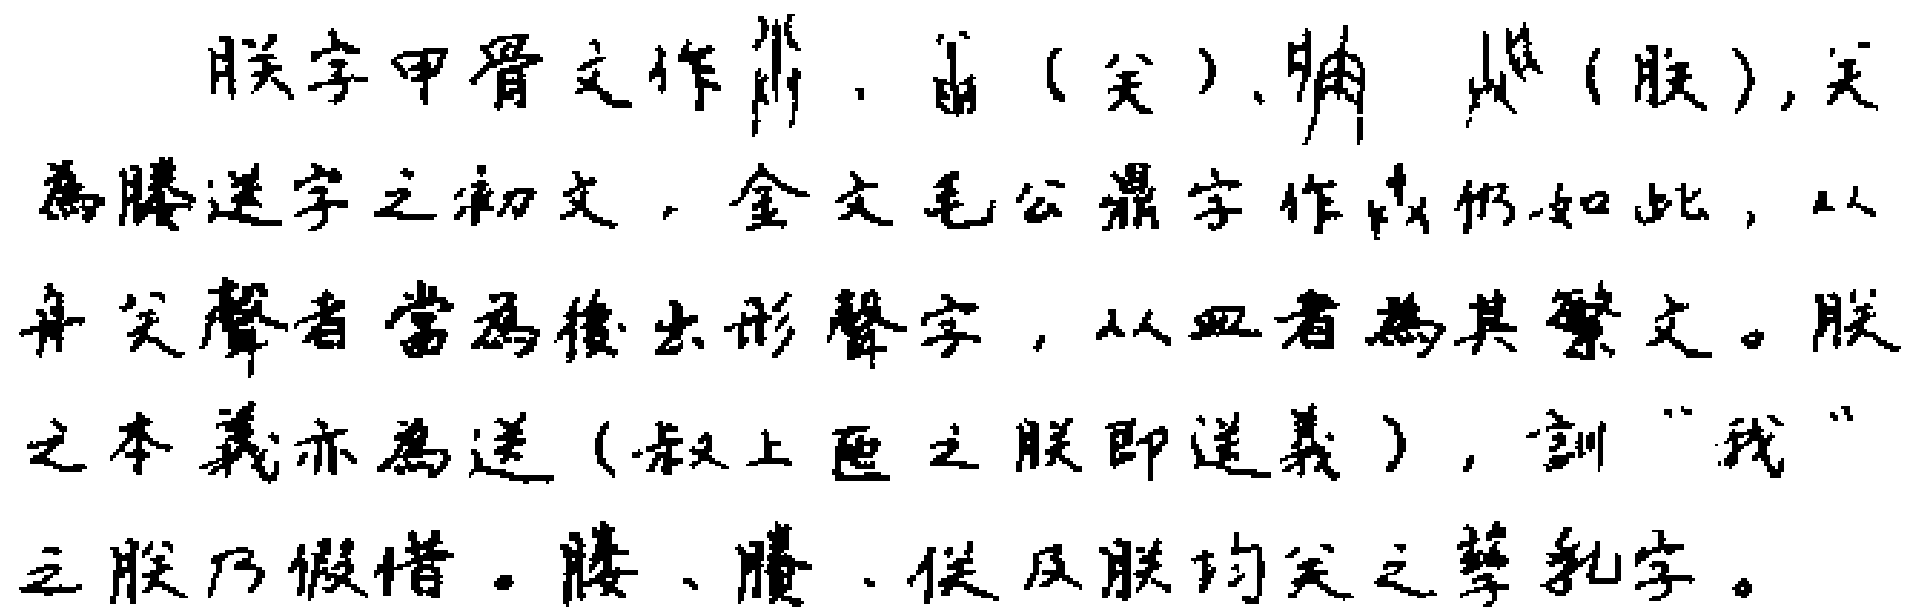 朕字甲骨文作、（关）、（朕），关
為媵送字之初文，金文毛公鼎字作仍如此，从
舟关聲者當為後出形聲字，从皿者為其繁文。朕
之本義亦為送（叔上匜之朕即送義），訓“我”
之朕乃假借。媵、賸、侁及朕均关之孳乳字。